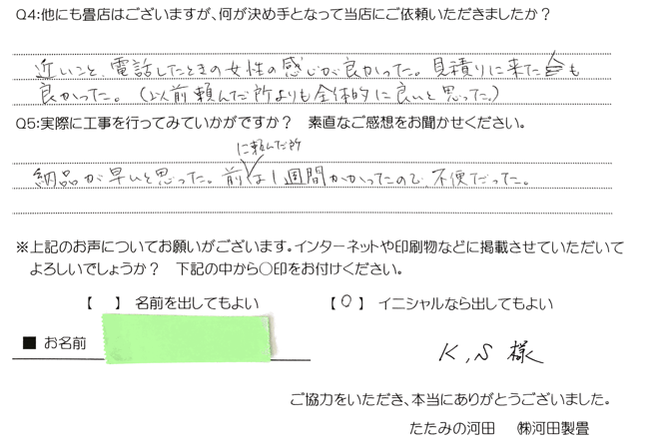 Q4:他にも畳店はございますが、何が決め手となって当店にご依頼いただきましたか？
近いこと、電話したときの女性の感じが良かった。見積りに来た も
良かった。（以前頼んだ所よりも全体的に良いと思った。）
Q5:実際に工事を行ってみていかがですか？　素直なご感想をお聞かせください。
に頼んだ所
納品が早いと思った。前 は1週間かかったので、不便だった。
※上記のお声についてお願いがございます。インターネットや印刷物などに掲載させていただいて
よろしいでしょうか？　下記の中から○印をお付けください。
【　】 名前を出してもよい　【○】 イニシャルなら出してもよい
■ お名前　K,S 様
ご協力をいただき、本当にありがとうございました。
たたみの河田　㈱河田製畳